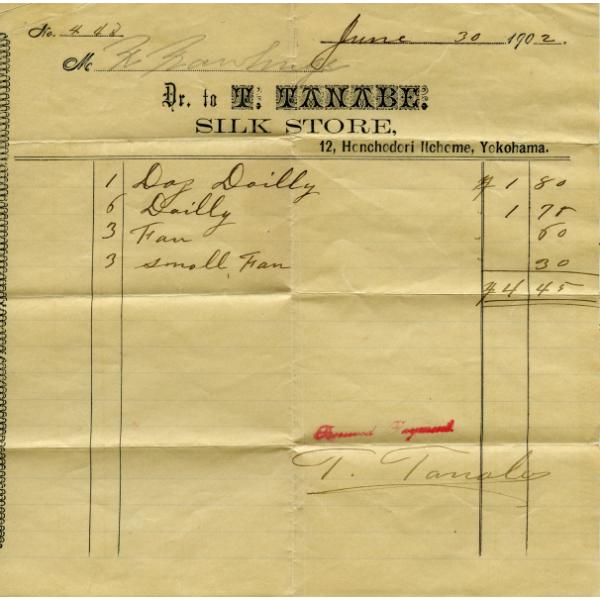 No. 448
June 30 1902.
M
Dr. to T. TANABE.
SILK STORE,
12, Honchodori Itchome, Yokohama.
1 Doz Doilly $ 1 80
6 Doilly 1 75
3 Fan 60
3 small Fan 30
$ 4 45
Received Payment
T. Tanabe